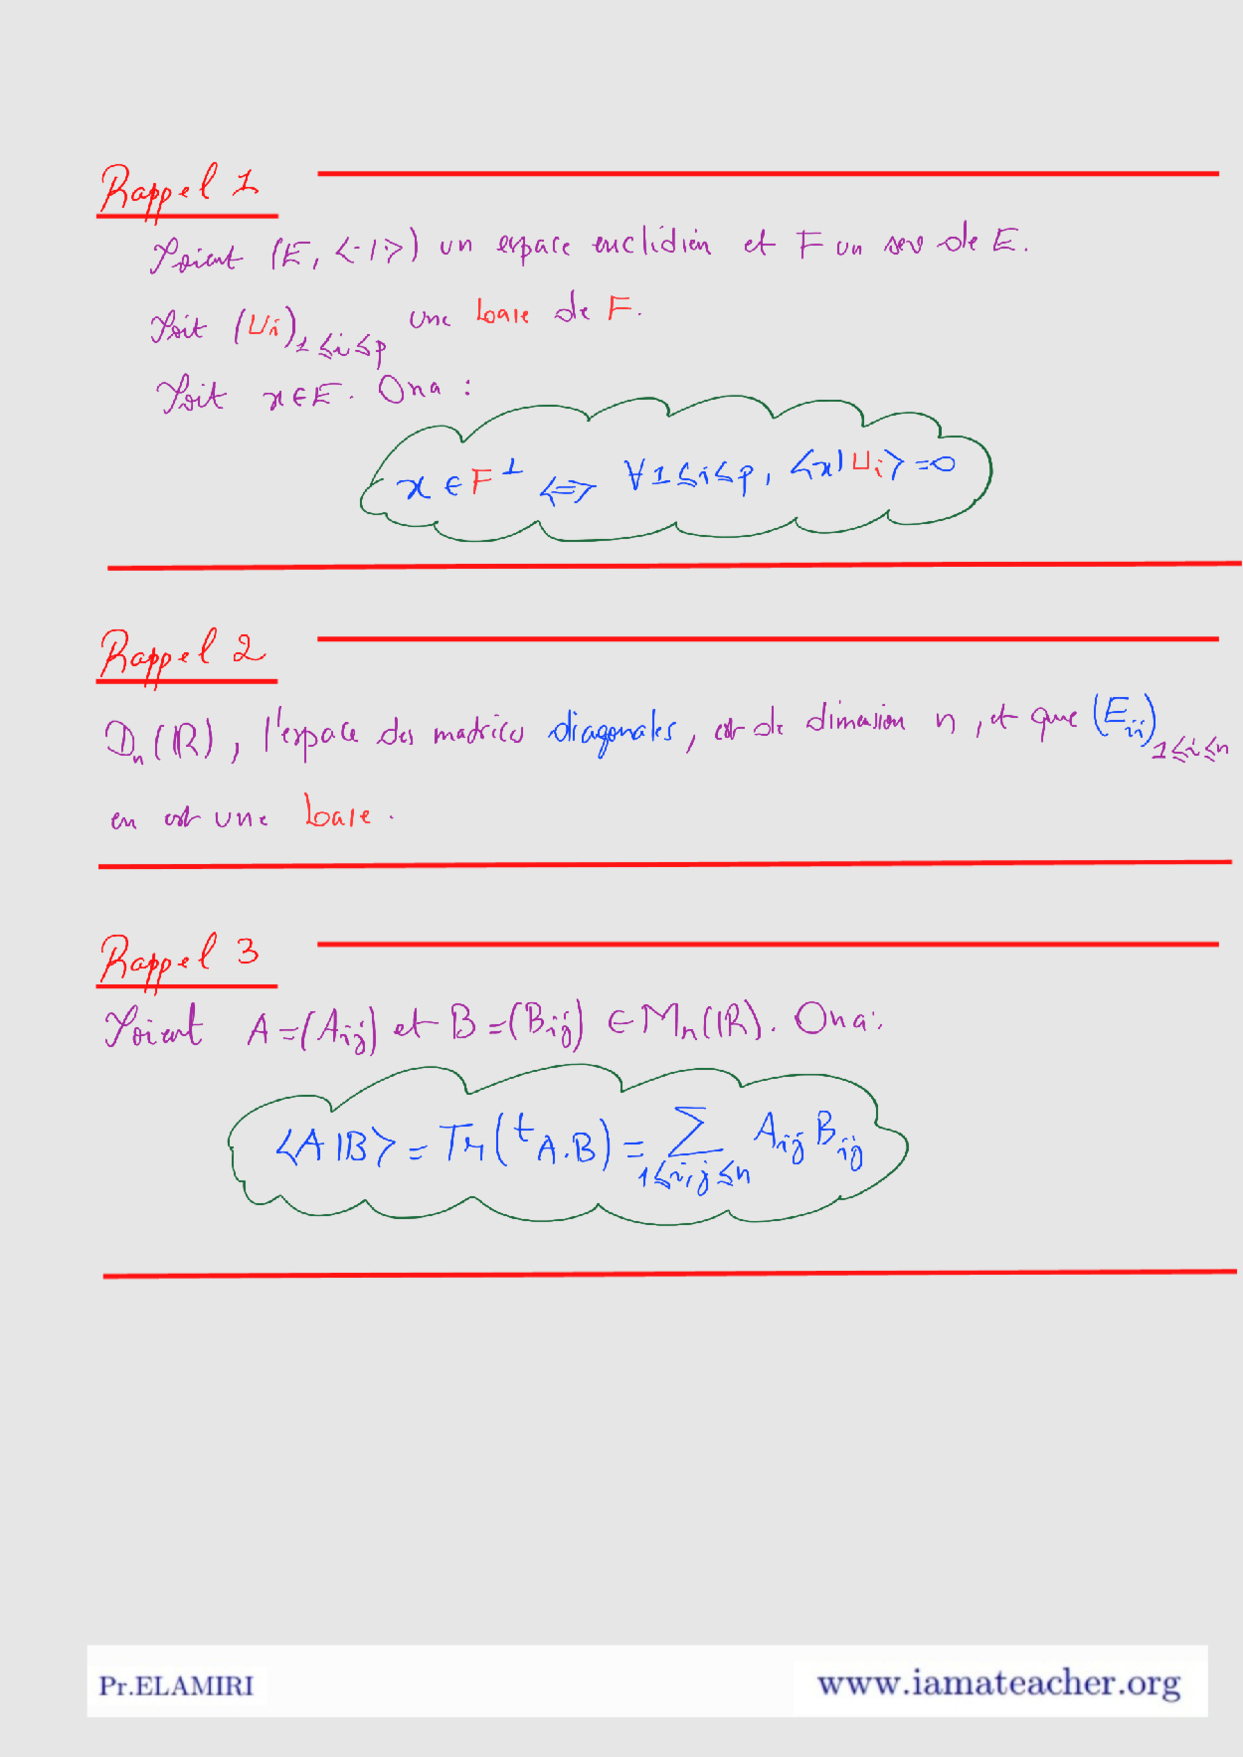 Rappel 1
Soient (E, <·|·>) un espace euclidien et F un sev de E.
Soit (Ui)1≤i≤p une base de F.
Soit x∈E. Ona :
x ∈ F⊥ <=> ∀1≤i≤p, <x|Ui>=0
Rappel 2
Dn(IR), l'espace des matrices diagonales, est de dimension n, et que (Eii)1≤i≤n
en est une base.
Rappel 3
Soient A=(Aij) et B=(Bij) ∈ Mn(IR). Ona:
<A|B> = Tr(tA.B) = ∑1≤i,j≤n Aij Bij
Pr.ELAMIRI
www.iamateacher.org